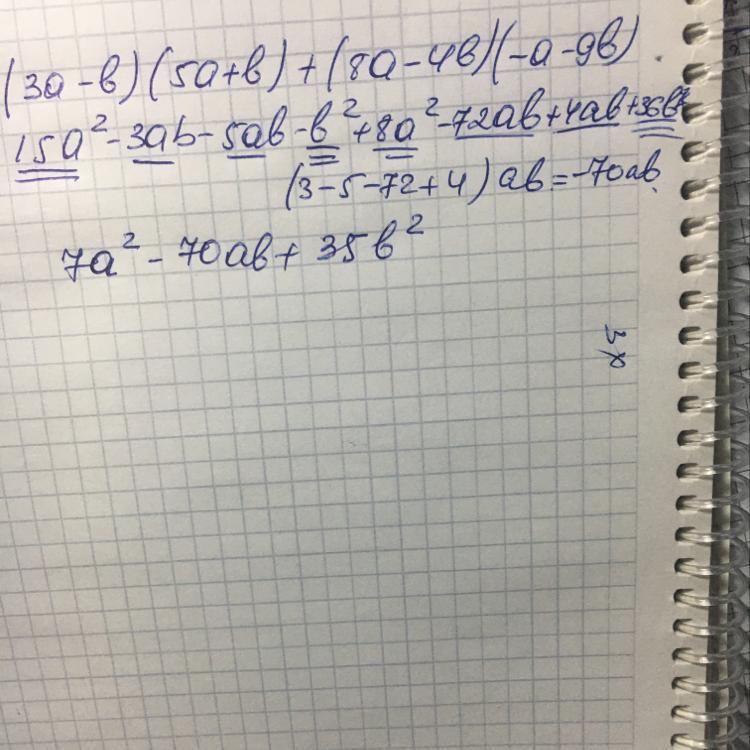 (3a-b)(5a+b)+(8a-4b)(-a-9b)
15a²-3ab-5ab-b²+8a²-72ab+4ab+36b²
(3-5-72+4)ab=-70ab
7a²-70ab+35b²